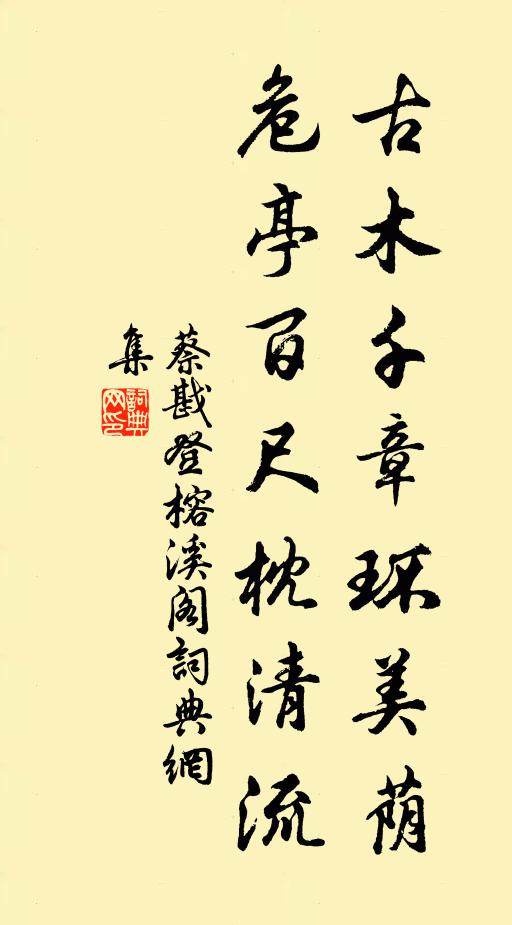 古木千章环美荫
危亭百尺枕清流
蔡戡登榕溪阁詞典網
集
詞典
网印